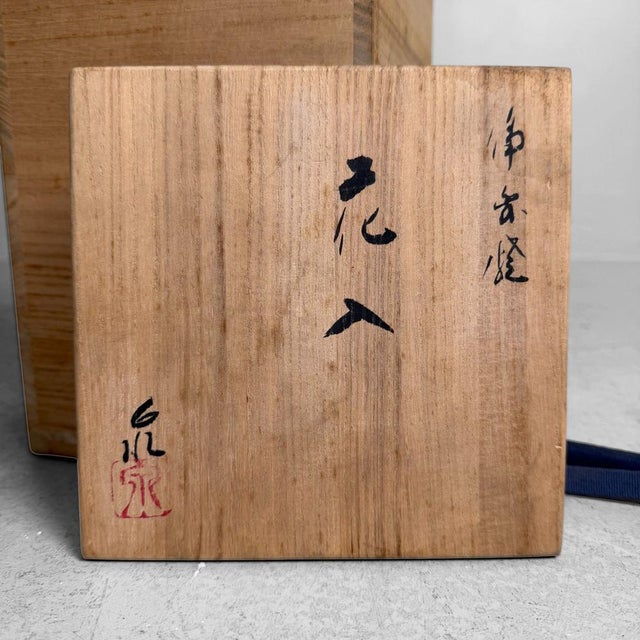 備前焼
花入
泉